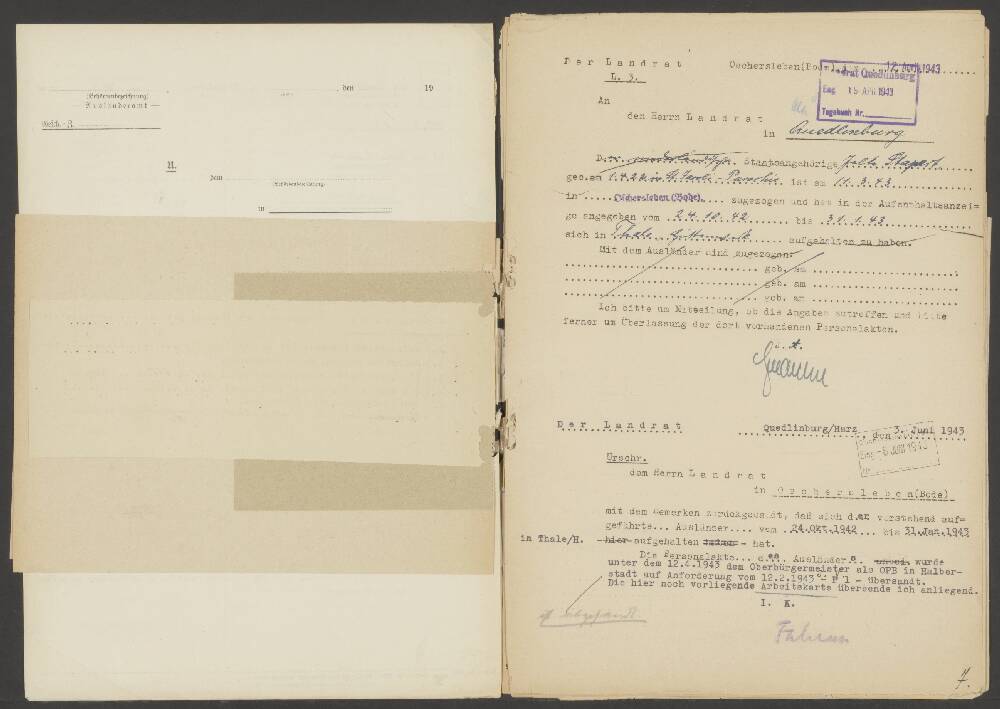 , den 19
(Behördenbezeichnung)
— Kreisoderamt —
U.
dem
(Behördenbezeichnung)
in
Der Landrat
L. 3.
Oschersleben(Bode), d. 12. April 1943
Landrat Quedlinburg
Eing. 15 APR 1943
Tagebuch Nr.
An
den Herrn Landrat
in Quedlinburg
D.er niederländische Staatsangehörige
geb. am 1.4.22 in St. ist am 11.3.43
in Oschersleben (Bode) zugezogen und hat in der Aufenthaltsanzei=
ge angegeben vom 24.10.42 bis 31.1.43
sich in Thale aufgehalten zu haben.
Mit dem Ausländer sind zugezogen:
geb. am
geb. am
geb. am
Ich bitte um Mitteilung, ob die Angaben zutreffen und bitte
ferner um Überlassung der dort vorhandenen Personalakten.
Der Landrat
Quedlinburg/Harz, den 3. Juni 1943
Eing. -5 JUNI 1943
Urschr.
dem Herrn Landrat
in Oschersleben(Bode)
mit dem Bemerken zurückgesandt, daß sich der vorstehend auf=
geführte... Ausländer.... vom 24.Okt.1942 bis 31.Jan.1943
in Thale/H. hier aufgehalten hat.
Die Personalakte... des Ausländers wurde
unter dem 12.4.1943 dem Oberbürgermeister als OPB in Halber-
stadt auf Anforderung vom 12.2.1943 - P 1 - übersandt.
Die hier noch vorliegende Arbeitskarte übersende ich anliegend.
I. K.
7.